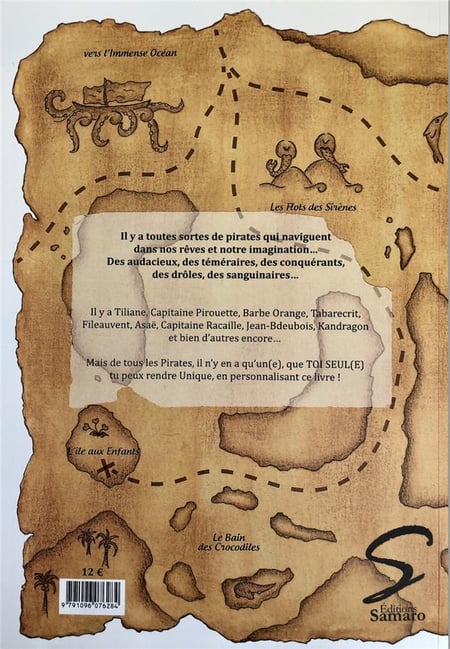 vers l'Immense Océan
Les Flots des Sirènes
Il y a toutes sortes de pirates qui naviguent
dans nos rêves et notre imagination...
Des audacieux, des téméraires, des conquérants,
des drôles, des sanguinaires...
Il y a Tiliane, Capitaine Pirouette, Barbe Orange, Tabarecrit,
Fileauvent, Asaë, Capitaine Racaille, Jean-Bdeubois, Kandragon
et bien d'autres encore...
Mais de tous les Pirates, il n'y en a qu'un(e), que TOI SEUL(E)
tu peux rendre Unique, en personnalisant ce livre !
L'île aux Enfants
Le Bain
des Crocodiles
12 €
9 791096 076284
S
Éditions
Samaro